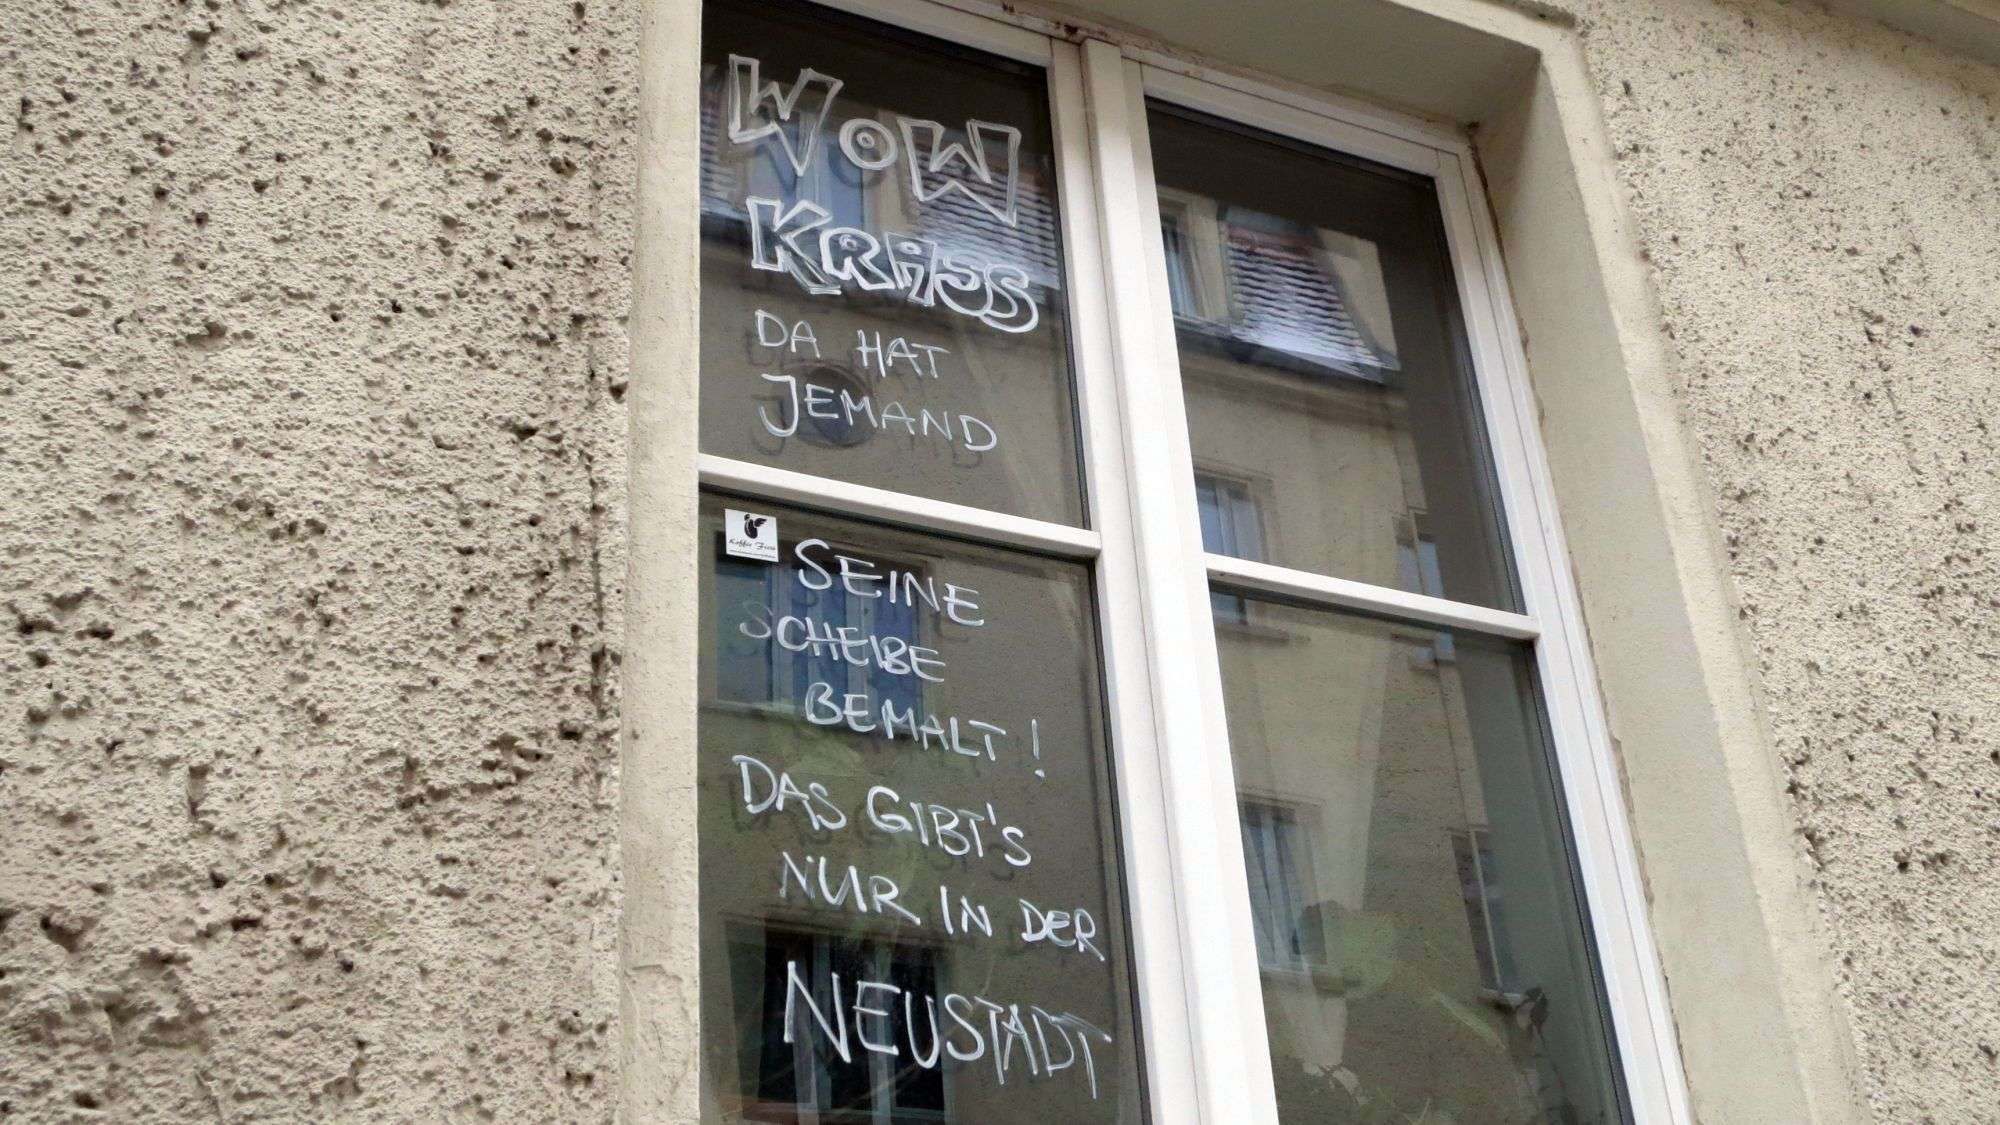 WOW
KRASS
DA HAT
JEMAND
Koffie Fiets
SEINE
SCHEIBE
BEMALT!
DAS GIBT'S
NUR IN DER
NEUSTADT